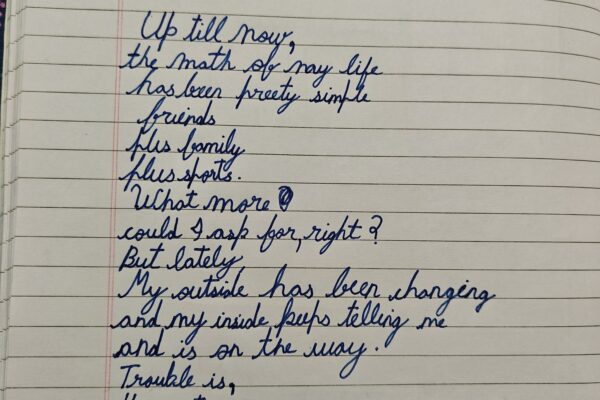 Up till now,
the math of my life
has been preety simple
friends
plus family
plus sports.
What more
could I ask for, right?
But lately,
My outside has been changing
and my inside keeps telling me
and is on the way.
Trouble is,